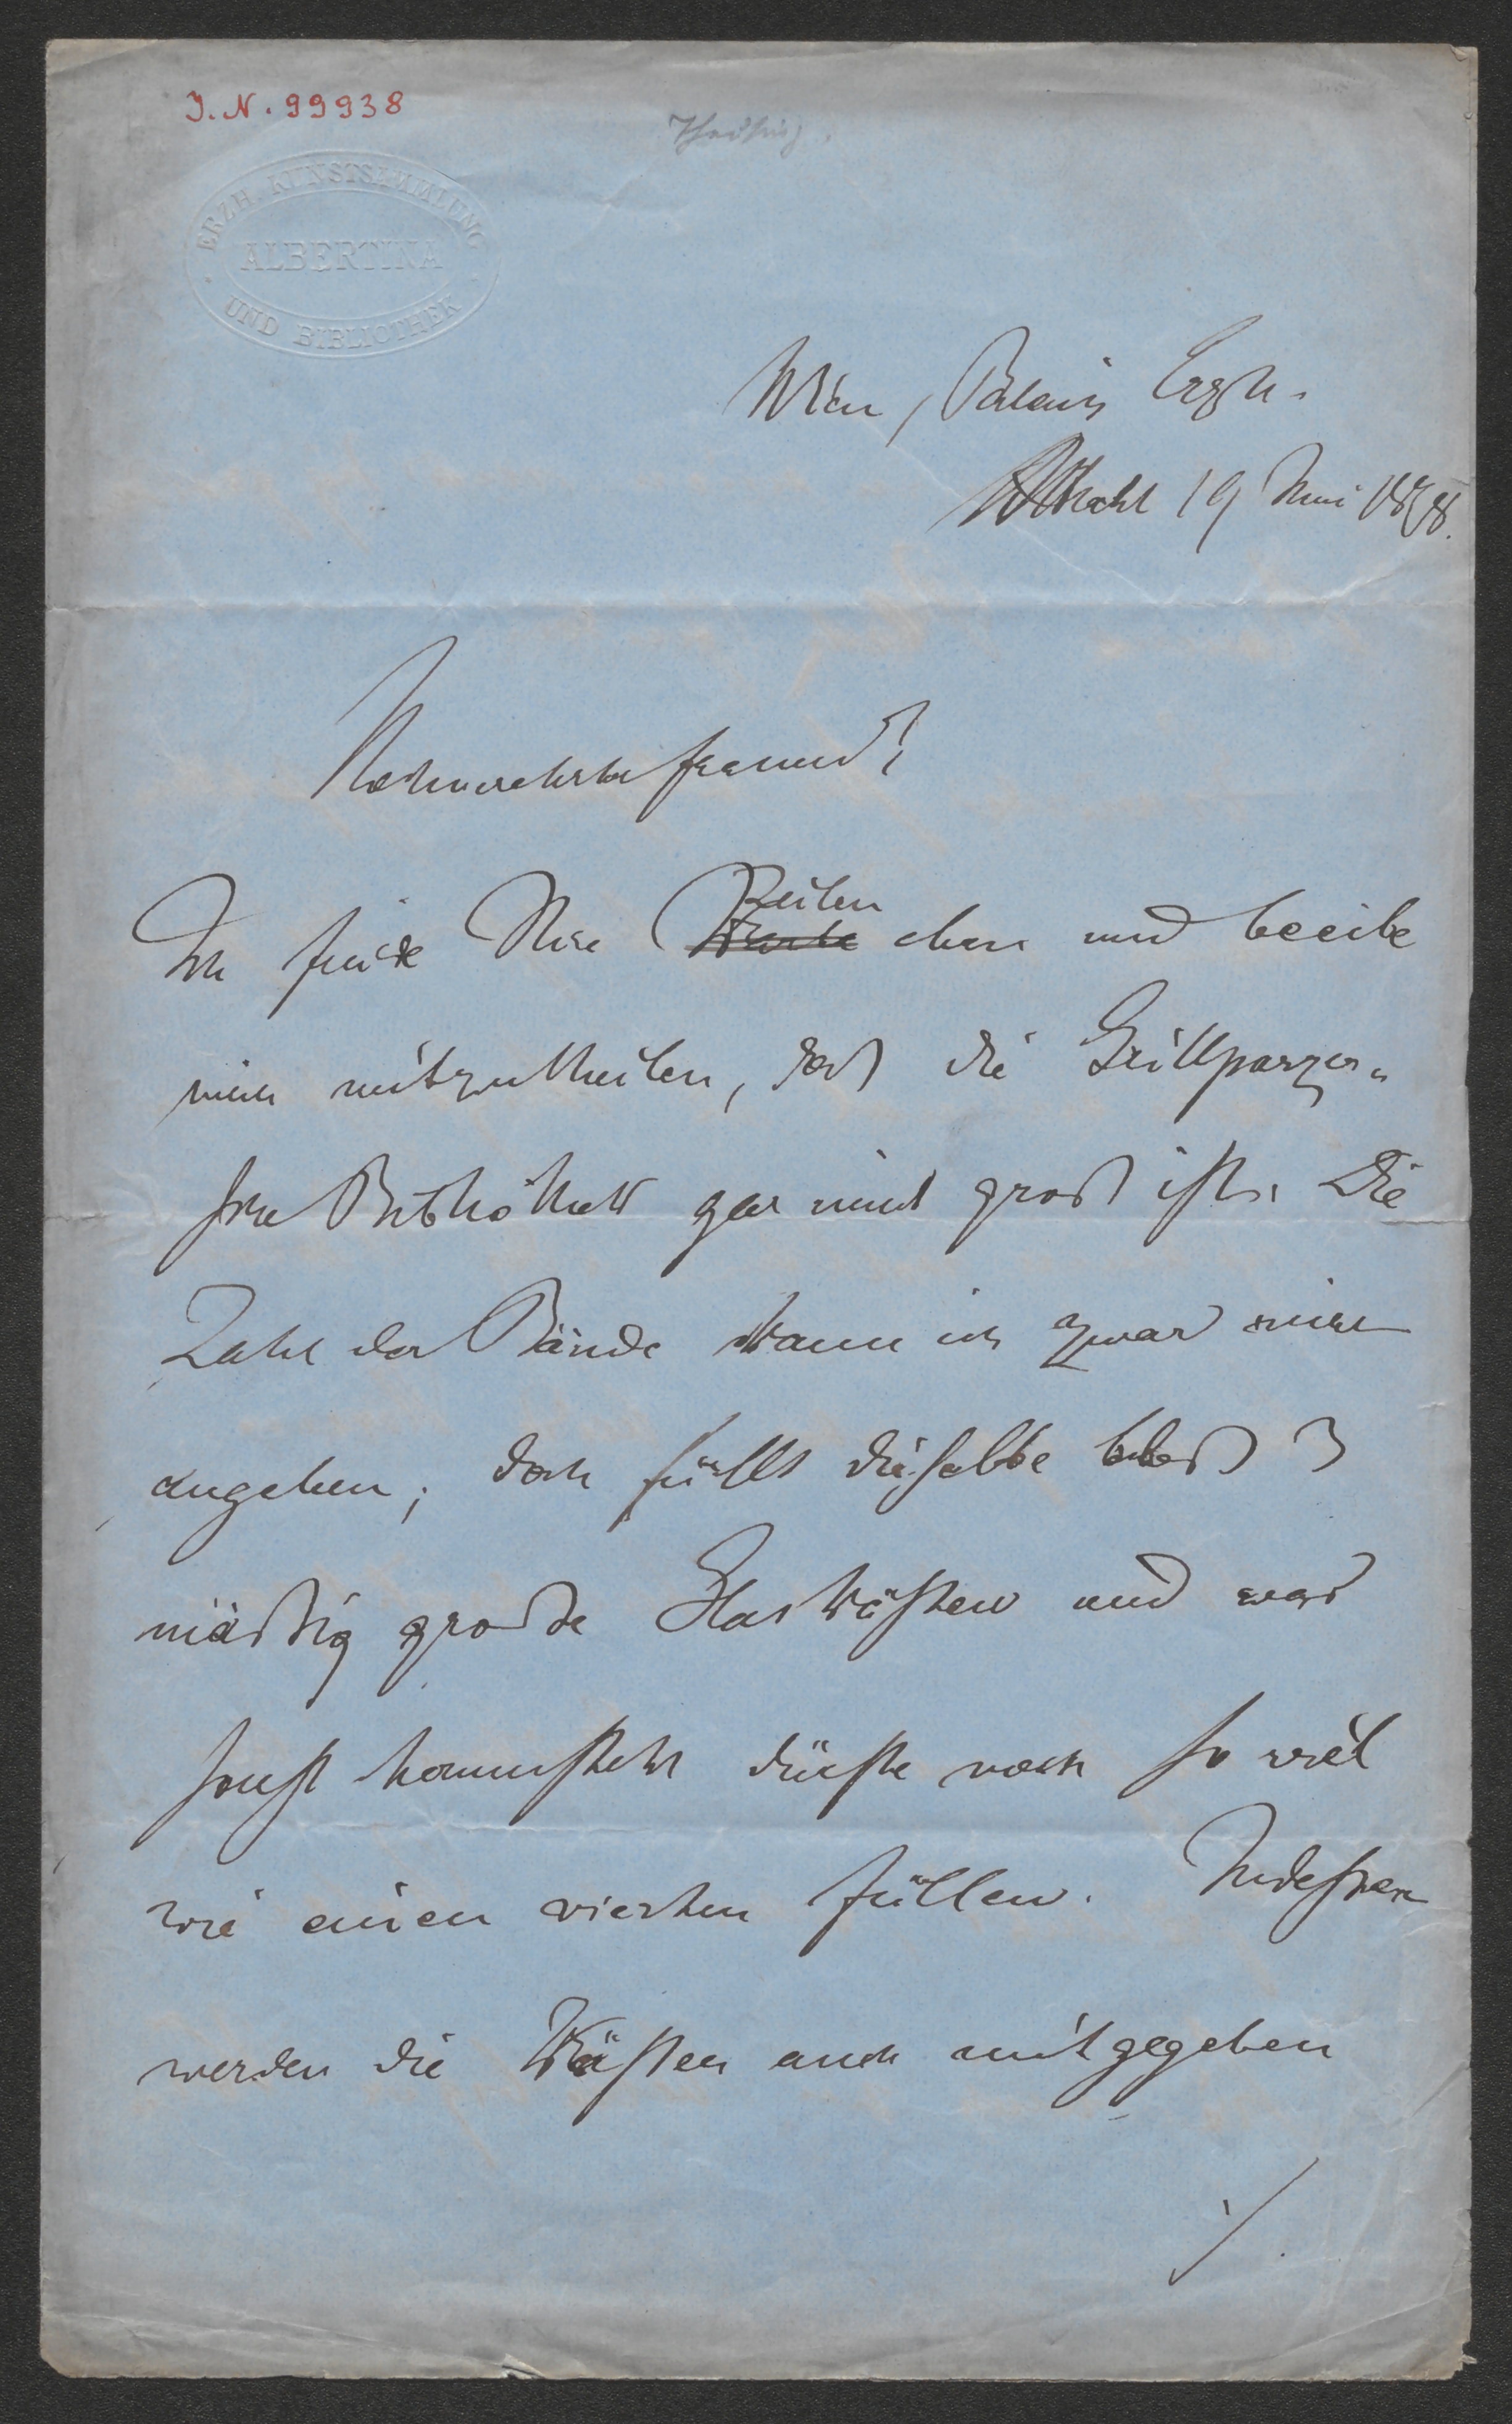 I.N. 99938
Thausing.
ERZH. KUNSTSAMMLUNG
ALBERTINA
UND BIBLIOTHEK
Wien, Palais Erzh.
Albrecht 19 Mai 1878.
Hochverehrter Freund!
Ich finde Ihre Zeilen eben und beeile
mich mitzutheilen, daß die Grillparzer-
sche Bibliothek gar nicht groß ist. Die
Zahl der Bände kann ich zwar nicht
angeben; doch füllt dieselbe bloß 3
mäßig große Glaskästen und was
sonst herumsteht dürfte noch so viel
wie einen vierten füllen. Indessen
werden die Kästen auch mitgegeben
./.